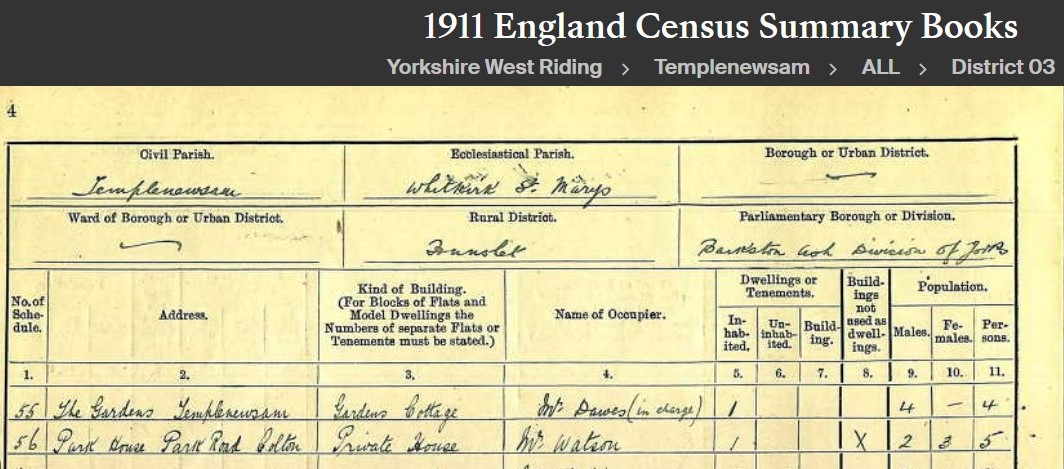 1911 England Census Summary Books
Yorkshire West Riding > Templenewsam > ALL > District 03
4
Civil Parish. Ecclesiastical Parish. Borough or Urban District.
Templenewsam Whitkirk St. Marys
Ward of Borough or Urban District. Rural District. Parliamentary Borough or Division.
Hunslet Barkston Ash Division of Yorks
No. of Schedule. Address. Kind of Building. (For Blocks of Flats and Model Dwellings the Numbers of separate Flats or Tenements must be stated.) Name of Occupier. Dwellings or Tenements. Inhabited. Uninhabited. Building. Buildings not used as dwellings. Population. Males. Females. Persons.
1. 2. 3. 4. 5. 6. 7. 8. 9. 10. 11.
55 The Gardens Templenewsam Gardens Cottage Mr Dawes (in charge) 1 4 – 4
56 Park House Park Road Colton Private House Mr Watson 1 X 2 3 5